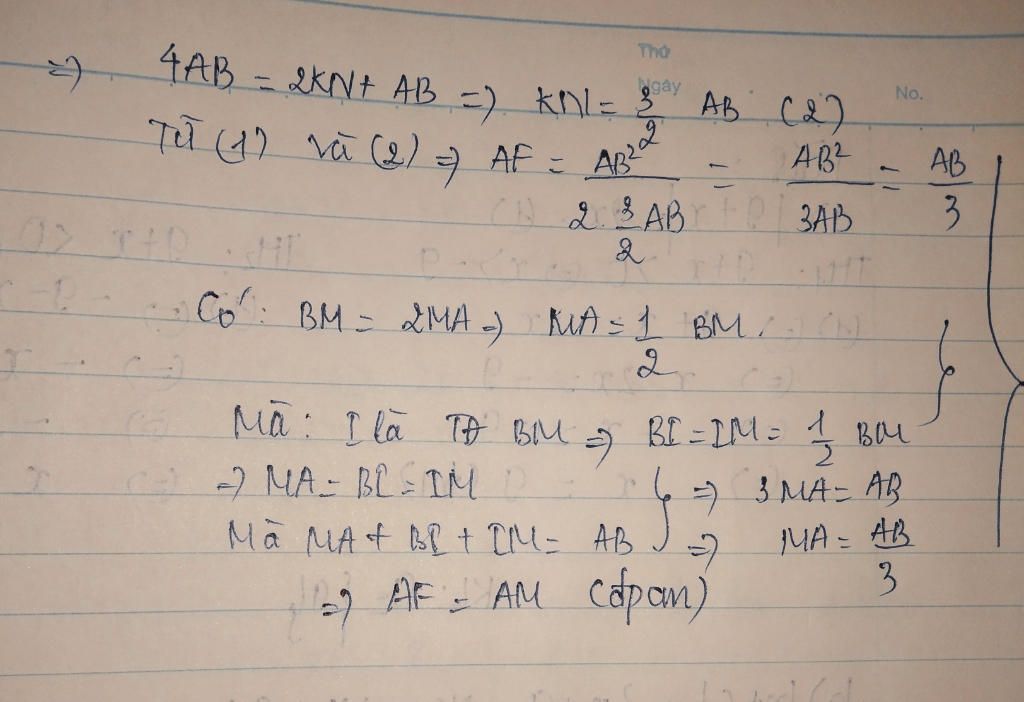 Thứ
Ngày
No.
=> 4AB = 2KN + AB => KN = 3/2 AB (2)
Từ (1) và (2) => AF = AB² / 2.3/2AB = AB² / 3AB = AB/3
Có: BM = 2MA => MA = 1/2 BM.
Mà: I là TĐ BM => BI = IM = 1/2 BM
=> MA = BI = IM => 3MA = AB
Mà MA + BI + IM = AB => MA = AB/3
=> AF = AM (đpcm)